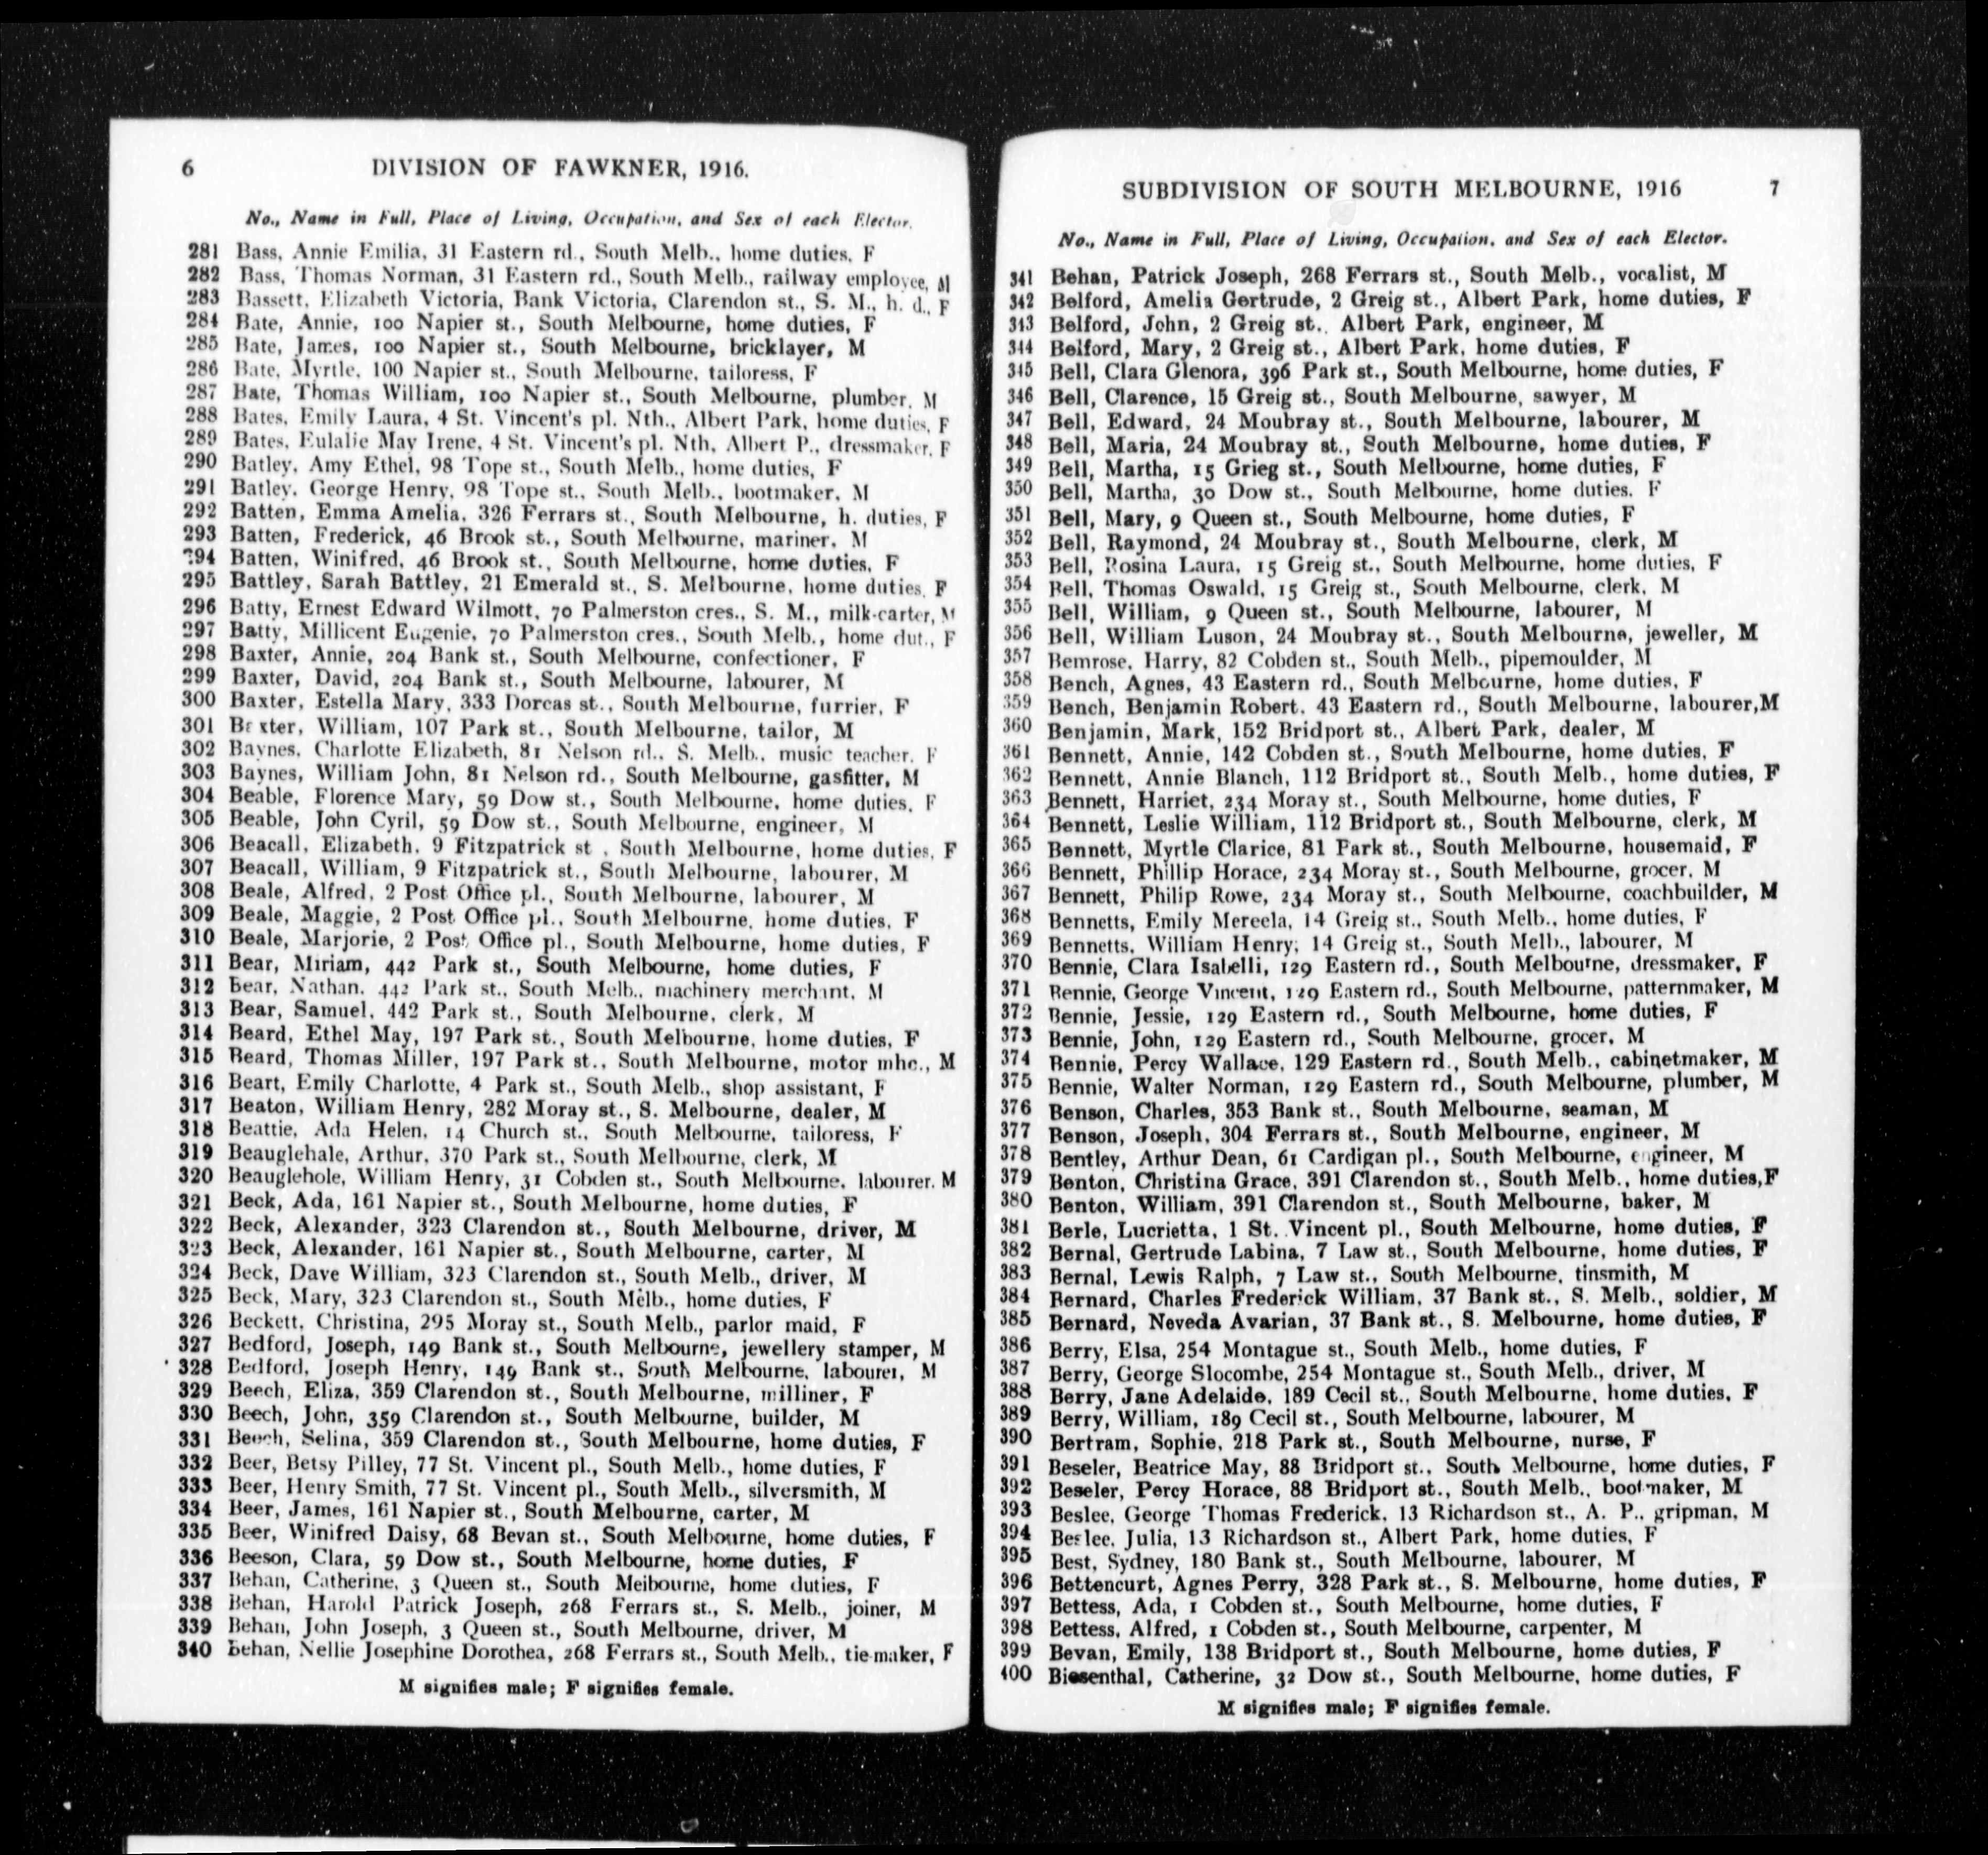 6 DIVISION OF FAWKNER, 1916.
No., Name in Full, Place of Living, Occupation, and Sex of each Elector.
281 Bass, Annie Emilia, 31 Eastern rd., South Melb., home duties, F
282 Bass, Thomas Norman, 31 Eastern rd., South Melb., railway employee, M
283 Bassett, Elizabeth Victoria, Bank Victoria, Clarendon st., S. M., h. d., F
284 Bate, Annie, 100 Napier st., South Melbourne, home duties, F
285 Bate, James, 100 Napier st., South Melbourne, bricklayer, M
286 Bate, Myrtle, 100 Napier st., South Melbourne, tailoress, F
287 Bate, Thomas William, 100 Napier st., South Melbourne, plumber, M
288 Bates, Emily Laura, 4 St. Vincent's pl. Nth., Albert Park, home duties, F
289 Bates, Eulalie May Irene, 4 St. Vincent's pl. Nth, Albert P., dressmaker, F
290 Batley, Amy Ethel, 98 Tope st., South Melb., home duties, F
291 Batley, George Henry, 98 Tope st., South Melb., bootmaker, M
292 Batten, Emma Amelia, 326 Ferrars st., South Melbourne, h. duties, F
293 Batten, Frederick, 46 Brook st., South Melbourne, mariner, M
294 Batten, Winifred, 46 Brook st., South Melbourne, home duties, F
295 Battley, Sarah Battley, 21 Emerald st., S. Melbourne, home duties, F
296 Batty, Ernest Edward Wilmott, 70 Palmerston cres., S. M., milk-carter, M
297 Batty, Millicent Eugenie, 70 Palmerston cres., South Melb., home dut., F
298 Baxter, Annie, 204 Bank st., South Melbourne, confectioner, F
299 Baxter, David, 204 Bank st., South Melbourne, labourer, M
300 Baxter, Estella Mary, 333 Dorcas st., South Melbourne, furrier, F
301 Baxter, William, 107 Park st., South Melbourne, tailor, M
302 Baynes, Charlotte Elizabeth, 81 Nelson rd., S. Melb., music teacher, F
303 Baynes, William John, 81 Nelson rd., South Melbourne, gasfitter, M
304 Beable, Florence Mary, 59 Dow st., South Melbourne, home duties, F
305 Beable, John Cyril, 59 Dow st., South Melbourne, engineer, M
306 Beacall, Elizabeth, 9 Fitzpatrick st., South Melbourne, home duties, F
307 Beacall, William, 9 Fitzpatrick st., South Melbourne, labourer, M
308 Beale, Alfred, 2 Post Office pl., South Melbourne, labourer, M
309 Beale, Maggie, 2 Post Office pl., South Melbourne, home duties, F
310 Beale, Marjorie, 2 Post Office pl., South Melbourne, home duties, F
311 Bear, Miriam, 442 Park st., South Melbourne, home duties, F
312 Bear, Nathan, 442 Park st., South Melb., machinery merchant, M
313 Bear, Samuel, 442 Park st., South Melbourne, clerk, M
314 Beard, Ethel May, 197 Park st., South Melbourne, home duties, F
315 Beard, Thomas Miller, 197 Park st., South Melbourne, motor mhc., M
316 Beart, Emily Charlotte, 4 Park st., South Melb., shop assistant, F
317 Beaton, William Henry, 282 Moray st., S. Melbourne, dealer, M
318 Beattie, Ada Helen, 14 Church st., South Melbourne, tailoress, F
319 Beauglehale, Arthur, 370 Park st., South Melbourne, clerk, M
320 Beauglehole, William Henry, 31 Cobden st., South Melbourne, labourer, M
321 Beck, Ada, 161 Napier st., South Melbourne, home duties, F
322 Beck, Alexander, 323 Clarendon st., South Melbourne, driver, M
323 Beck, Alexander, 161 Napier st., South Melbourne, carter, M
324 Beck, Dave William, 323 Clarendon st., South Melb., driver, M
325 Beck, Mary, 323 Clarendon st., South Melb., home duties, F
326 Beckett, Christina, 295 Moray st., South Melb., parlor maid, F
327 Bedford, Joseph, 149 Bank st., South Melbourne, jewellery stamper, M
328 Bedford, Joseph Henry, 149 Bank st., South Melbourne, labourer, M
329 Beech, Eliza, 359 Clarendon st., South Melbourne, milliner, F
330 Beech, John, 359 Clarendon st., South Melbourne, builder, M
331 Beech, Selina, 359 Clarendon st., South Melbourne, home duties, F
332 Beer, Betsy Pilley, 77 St. Vincent pl., South Melb., home duties, F
333 Beer, Henry Smith, 77 St. Vincent pl., South Melb., silversmith, M
334 Beer, James, 161 Napier st., South Melbourne, carter, M
335 Beer, Winifred Daisy, 68 Bevan st., South Melbourne, home duties, F
336 Beeson, Clara, 59 Dow st., South Melbourne, home duties, F
337 Behan, Catherine, 3 Queen st., South Melbourne, home duties, F
338 Behan, Harold Patrick Joseph, 268 Ferrars st., S. Melb., joiner, M
339 Behan, John Joseph, 3 Queen st., South Melbourne, driver, M
340 Behan, Nellie Josephine Dorothea, 268 Ferrars st., South Melb., tie-maker, F
M signifies male; F signifies female.
SUBDIVISION OF SOUTH MELBOURNE, 1916 7
No., Name in Full, Place of Living, Occupation, and Sex of each Elector.
341 Behan, Patrick Joseph, 268 Ferrars st., South Melb., vocalist, M
342 Belford, Amelia Gertrude, 2 Greig st., Albert Park, home duties, F
343 Belford, John, 2 Greig st., Albert Park, engineer, M
344 Belford, Mary, 2 Greig st., Albert Park, home duties, F
345 Bell, Clara Glenora, 396 Park st., South Melbourne, home duties, F
346 Bell, Clarence, 15 Greig st., South Melbourne, sawyer, M
347 Bell, Edward, 24 Moubray st., South Melbourne, labourer, M
348 Bell, Maria, 24 Moubray st., South Melbourne, home duties, F
349 Bell, Martha, 15 Grieg st., South Melbourne, home duties, F
350 Bell, Martha, 30 Dow st., South Melbourne, home duties, F
351 Bell, Mary, 9 Queen st., South Melbourne, home duties, F
352 Bell, Raymond, 24 Moubray st., South Melbourne, clerk, M
353 Bell, Rosina Laura, 15 Greig st., South Melbourne, home duties, F
354 Bell, Thomas Oswald, 15 Greig st., South Melbourne, clerk, M
355 Bell, William, 9 Queen st., South Melbourne, labourer, M
356 Bell, William Luson, 24 Moubray st., South Melbourne, jeweller, M
357 Bemrose, Harry, 82 Cobden st., South Melb., pipemoulder, M
358 Bench, Agnes, 43 Eastern rd., South Melbourne, home duties, F
359 Bench, Benjamin Robert, 43 Eastern rd., South Melbourne, labourer, M
360 Benjamin, Mark, 152 Bridport st., Albert Park, dealer, M
361 Bennett, Annie, 142 Cobden st., South Melbourne, home duties, F
362 Bennett, Annie Blanch, 112 Bridport st., South Melb., home duties, F
363 Bennett, Harriet, 234 Moray st., South Melbourne, home duties, F
364 Bennett, Leslie William, 112 Bridport st., South Melbourne, clerk, M
365 Bennett, Myrtle Clarice, 81 Park st., South Melbourne, housemaid, F
366 Bennett, Phillip Horace, 234 Moray st., South Melbourne, grocer, M
367 Bennett, Philip Rowe, 234 Moray st., South Melbourne, coachbuilder, M
368 Bennetts, Emily Mereela, 14 Greig st., South Melb., home duties, F
369 Bennetts, William Henry, 14 Greig st., South Melb., labourer, M
370 Bennie, Clara Isabelli, 129 Eastern rd., South Melbourne, dressmaker, F
371 Bennie, George Vincent, 129 Eastern rd., South Melbourne, patternmaker, M
372 Bennie, Jessie, 129 Eastern rd., South Melbourne, home duties, F
373 Bennie, John, 129 Eastern rd., South Melbourne, grocer, M
374 Bennie, Percy Wallace, 129 Eastern rd., South Melb., cabinetmaker, M
375 Bennie, Walter Norman, 129 Eastern rd., South Melbourne, plumber, M
376 Benson, Charles, 353 Bank st., South Melbourne, seaman, M
377 Benson, Joseph, 304 Ferrars st., South Melbourne, engineer, M
378 Bentley, Arthur Dean, 61 Cardigan pl., South Melbourne, engineer, M
379 Benton, Christina Grace, 391 Clarendon st., South Melb., home duties, F
380 Benton, William, 391 Clarendon st., South Melbourne, baker, M
381 Berle, Lucrietta, 1 St. Vincent pl., South Melbourne, home duties, F
382 Bernal, Gertrude Labina, 7 Law st., South Melbourne, home duties, F
383 Bernal, Lewis Ralph, 7 Law st., South Melbourne, tinsmith, M
384 Bernard, Charles Frederick William, 37 Bank st., S. Melb., soldier, M
385 Bernard, Neveda Avarian, 37 Bank st., S. Melbourne, home duties, F
386 Berry, Elsa, 254 Montague st., South Melb., home duties, F
387 Berry, George Slocombe, 254 Montague st., South Melb., driver, M
388 Berry, Jane Adelaide, 189 Cecil st., South Melbourne, home duties, F
389 Berry, William, 189 Cecil st., South Melbourne, labourer, M
390 Bertram, Sophie, 218 Park st., South Melbourne, nurse, F
391 Beseler, Beatrice May, 88 Bridport st., South Melbourne, home duties, F
392 Beseler, Percy Horace, 88 Bridport st., South Melb., bootmaker, M
393 Beslee, George Thomas Frederick, 13 Richardson st., A. P., gripman, M
394 Beslee, Julia, 13 Richardson st., Albert Park, home duties, F
395 Best, Sydney, 180 Bank st., South Melbourne, labourer, M
396 Bettencurt, Agnes Perry, 328 Park st., S. Melbourne, home duties, F
397 Bettess, Ada, 1 Cobden st., South Melbourne, home duties, F
398 Bettess, Alfred, 1 Cobden st., South Melbourne, carpenter, M
399 Bevan, Emily, 138 Bridport st., South Melbourne, home duties, F
400 Biesenthal, Catherine, 32 Dow st., South Melbourne, home duties, F
M signifies male; F signifies female.